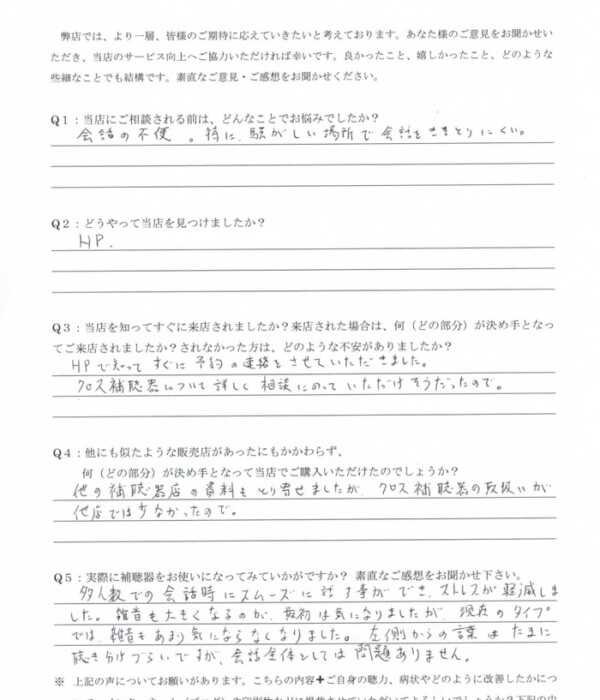 弊店では、より一層、皆様のご期待に応えていきたいと考えております。あなた様のご意見をお聞かせい
ただき、当店のサービス向上へご協力いただければ幸いです。良かったこと、嬉しかったこと、どのような
些細なことでも結構です。素直なご意見・ご感想をお聞かせください。
Q1：当店にご相談される前は、どんなことでお悩みでしたか？
会話の不便。特に、騒がしい場所で会話をききとりにくい。
Q2：どうやって当店を見つけましたか？
HP.
Q3：当店を知ってすぐに来店されましたか？来店された場合は、何（どの部分）が決め手となっ
てご来店されましたか？されなかった方は、どのような不安がありましたか？
HPで知ってすぐに予約の連絡をさせていただきました。
クロス補聴器について詳しく相談にのっていただけそうだったので。
Q4：他にも似たような販売店があったにもかかわらず、
何（どの部分）が決め手となって当店でご購入いただけたのでしょうか？
他の補聴器店の資料もとり寄せましたが、クロス補聴器の取扱いが
他店では少なかったので。
Q5：実際に補聴器をお使いになってみていかがですか？ 素直なご感想をお聞かせ下さい。
多人数での会話時にスムーズに話す事ができ、ストレスが軽減しま
した。雑音も大きくなるのが、最初は気になりましたが、現在のタイプ
では、雑音もあまり気にならなくなりました。左側からの言葉はたまに
聴き分けづらいですが、会話全体としては問題ありません。
※ 上記の声についてお願いがあります。こちらの内容＋ご自身の聴力、病状やどのように改善したかにつ